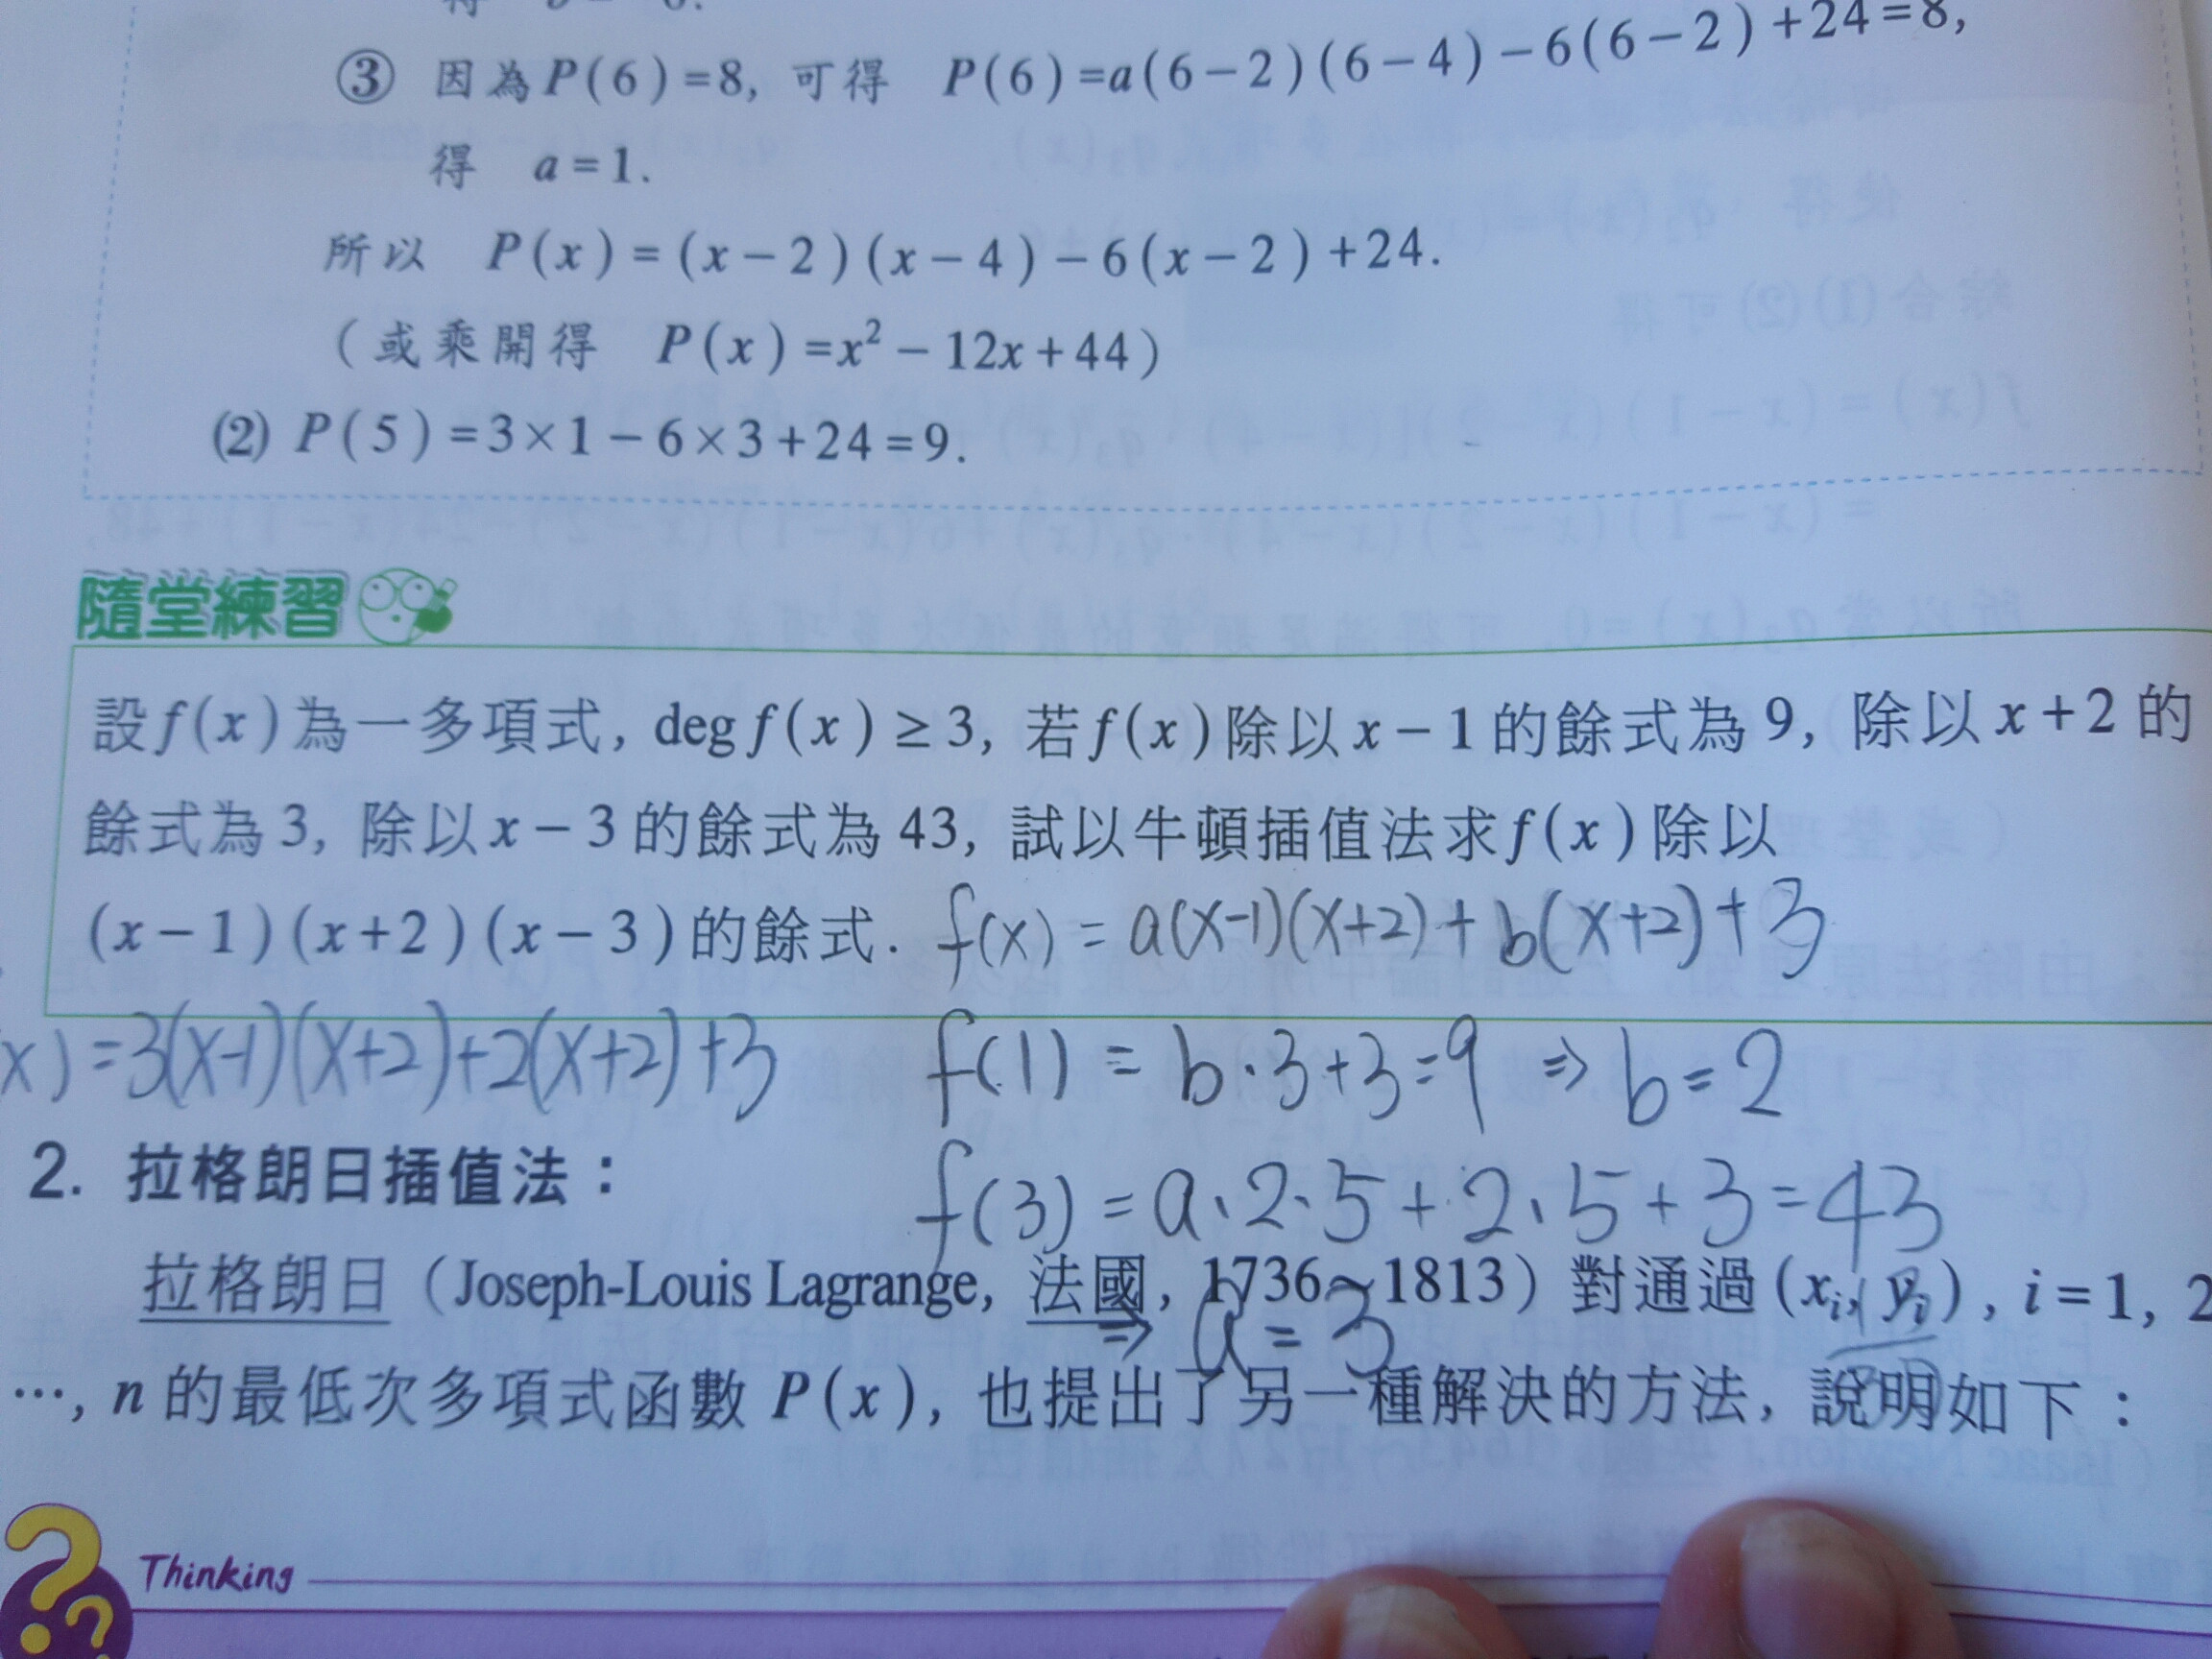 ③ 因為P(6)=8, 可得 P(6)=a(6-2)(6-4)-6(6-2)+24=8,
得 a=1.
所以 P(x)=(x-2)(x-4)-6(x-2)+24.
(或乘開得 P(x)=x²-12x+44)
(2) P(5)=3×1-6×3+24=9.
隨堂練習
設f(x)為一多項式, deg f(x)≥3, 若f(x)除以x-1的餘式為9, 除以x+2的
餘式為3, 除以x-3的餘式為43, 試以牛頓插值法求f(x)除以
(x-1)(x+2)(x-3)的餘式. f(x)=a(x-1)(x+2)+b(x+2)+3
x)=3(x-1)(x+2)+2(x+2)+3 f(1)=b·3+3=9 ⇒ b=2
2. 拉格朗日插值法：
f(3)=a·2·5+2·5+3=43
拉格朗日 (Joseph-Louis Lagrange, 法國, 1736~1813) 對通過(xᵢ, yᵢ), i=1, 2
⇒ a=3
…, n的最低次多項式函數P(x), 也提出了另一種解決的方法, 說明如下：
Thinking